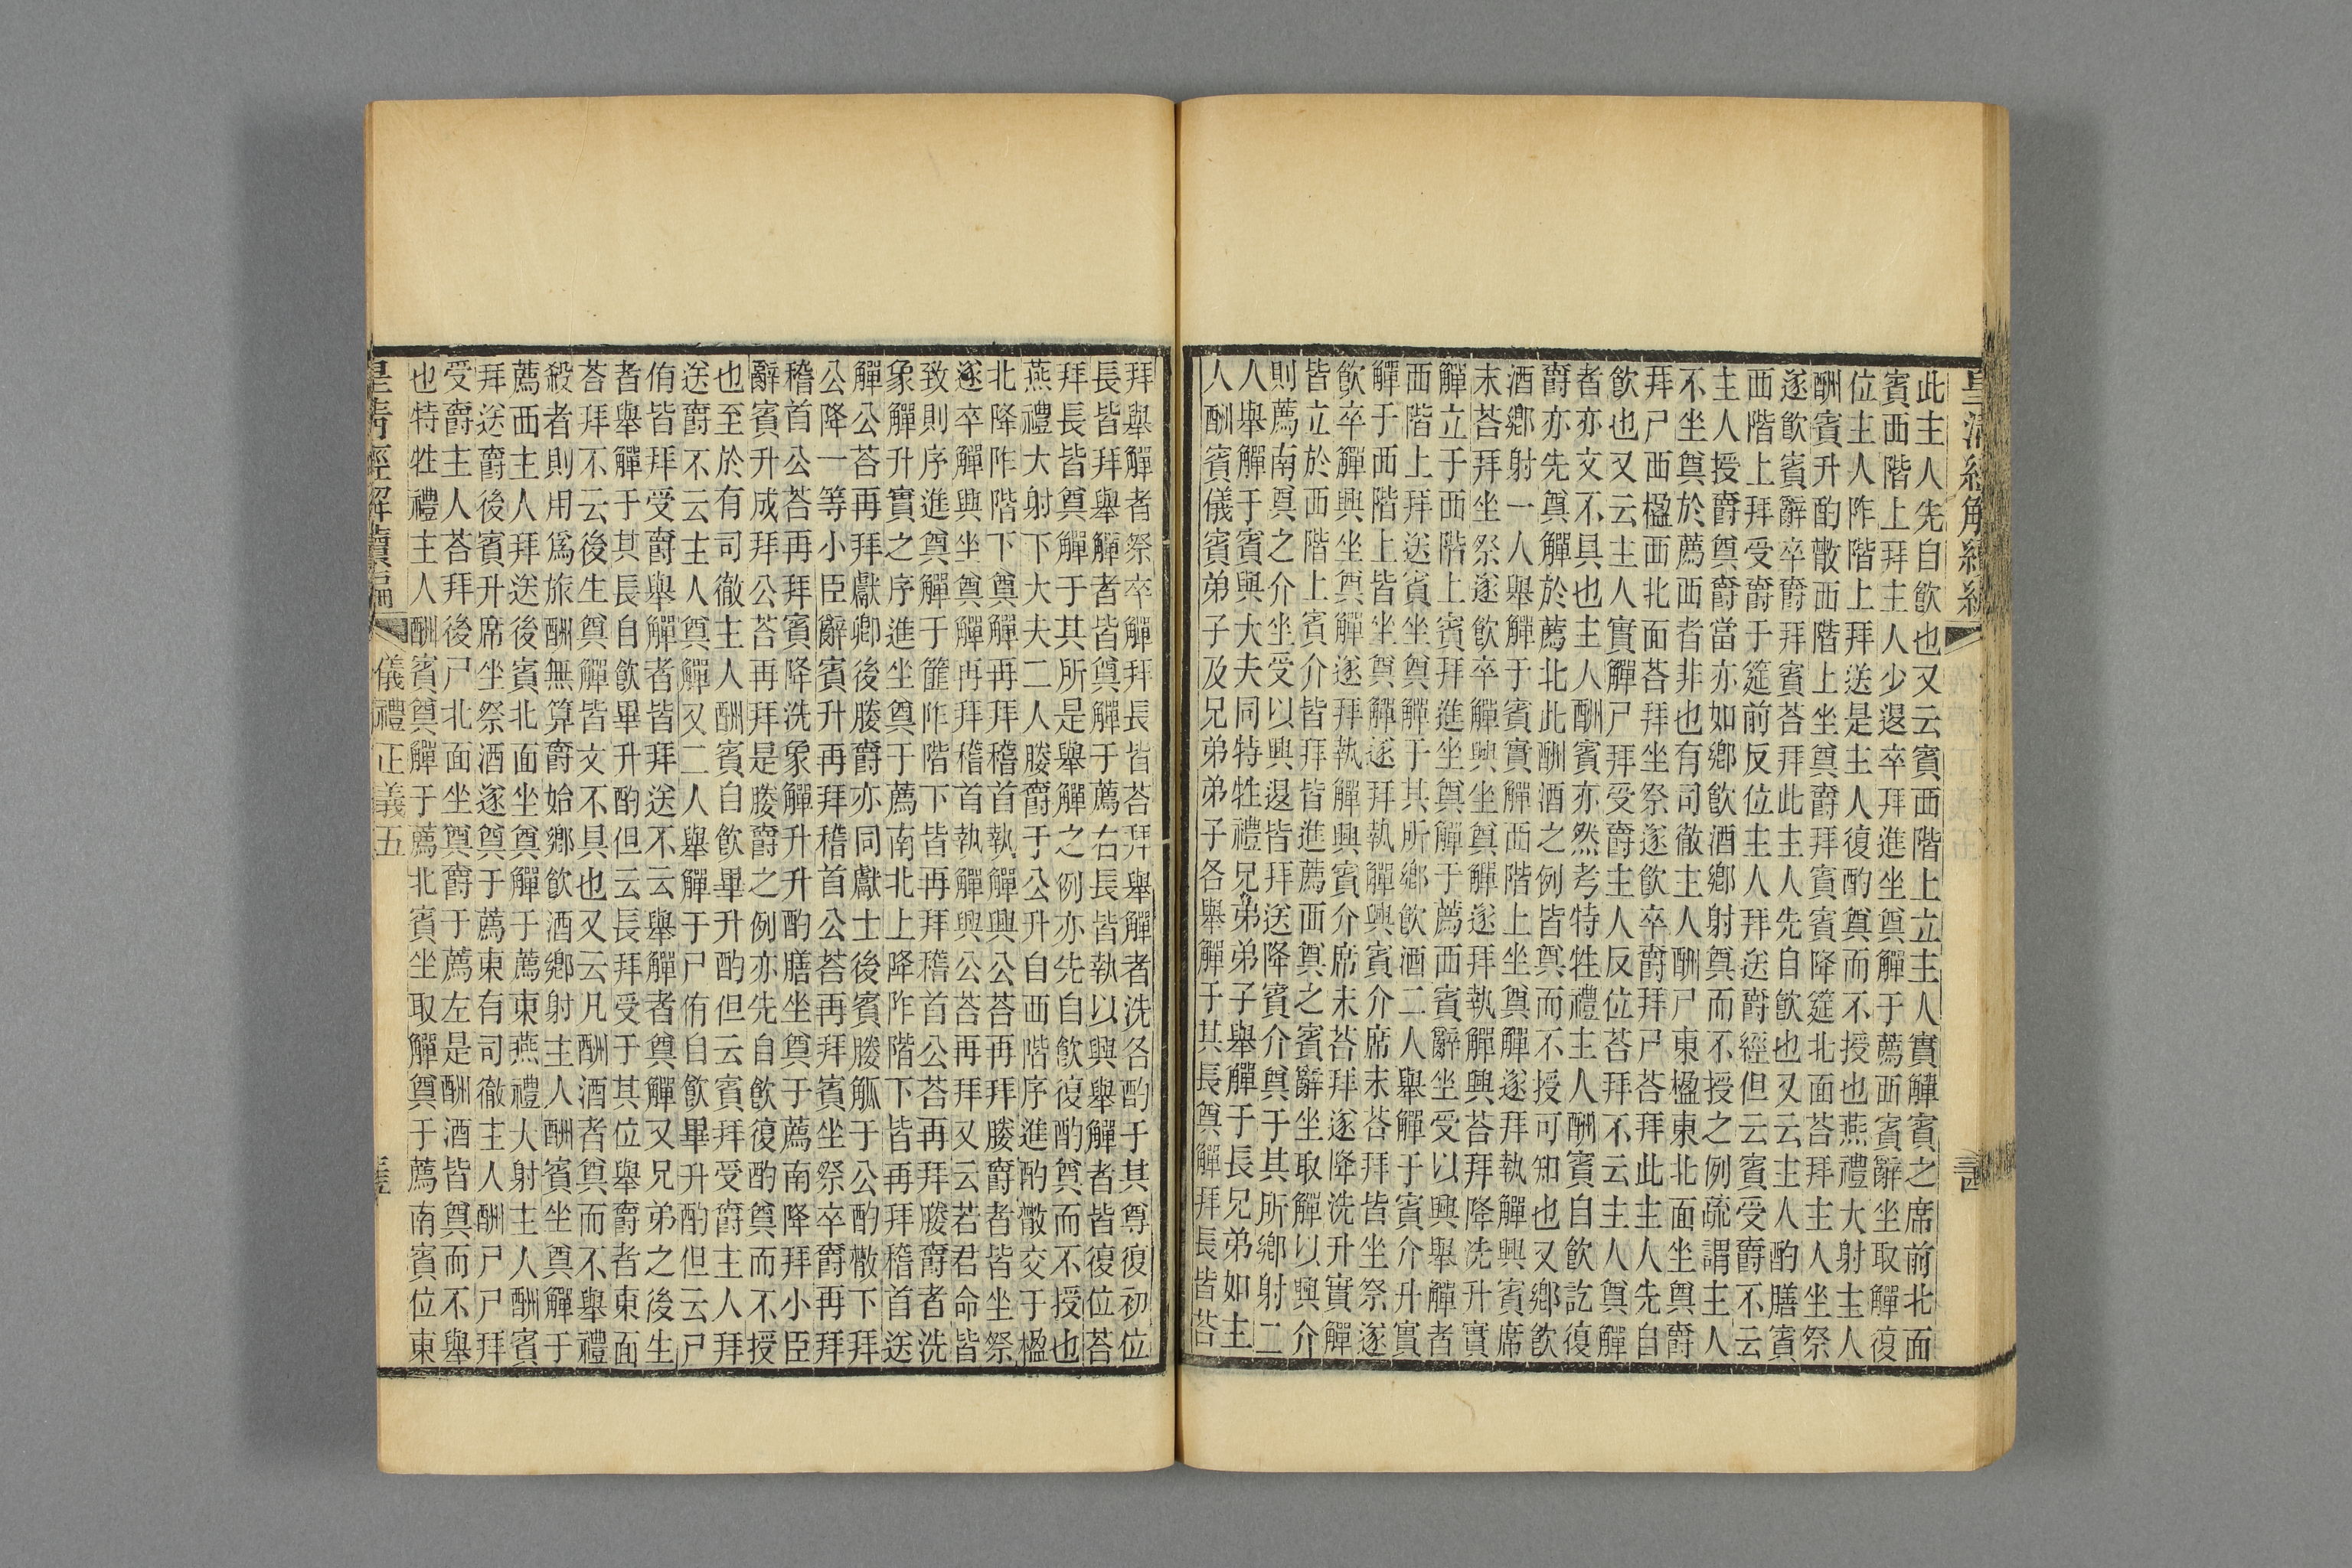 皇清經解續編
此主人先自飮也又云賓西階上立主人實觶賓之席前北面
賓西階上拜主人少退卒拜進坐奠觶于薦西賓辭坐取觶復
位主人阼階上拜送是主人復酌奠而不授也燕禮大射主人
酬賓升酌散西階上坐奠爵拜賓賓降筵北面荅拜主人坐祭
遂飮賓辭卒爵拜賓荅拜此主人先自飮也又云主人酌膳賓
西階上拜受爵于筵前反位主人拜送爵經但云賓受爵不云
主人授爵奠爵當亦如鄕飮酒鄕射奠而不授之例疏謂主人
不坐奠於薦西者非也有司徹主人酬尸東楹東北面坐奠爵
拜尸西楹西北面荅拜坐祭遂飮卒爵拜尸荅拜此主人先自
飮也又云主人實觶尸拜受爵主人反位荅拜不云主人奠觶
者亦文不具也主人酬賓亦然考特牲禮主人酬賓自飮訖復
爵亦先奠觶於薦北此酬酒之例皆奠而不授可知也又鄕飮
酒鄕射一人舉觶于賓實觶西階上坐奠觶遂拜執觶興賓席
末荅拜坐祭遂飮卒觶興坐奠觶遂拜執觶興荅拜降洗升實
觶立于西階上賓拜進坐奠觶于薦西賓辭坐受以興舉觶者
西階上拜送賓坐奠觶于其所鄕飮酒二人舉觶于賓介升實
觶于西階上皆坐奠觶遂拜執觶興賓介席末荅拜皆坐祭遂
飮卒觶興坐奠觶遂拜執觶興賓介席末荅拜遂降洗升實觶
皆立於西階上賓介皆拜皆進薦西奠之賓辭坐取觶以興介
則薦南奠之介坐受以興退皆拜送降賓介奠于其所鄕射二
人舉觶于賓與大夫同特牲禮兄弟弟子舉觶于長兄弟如主
人酬賓儀賓弟子及兄弟弟子各舉觶于其長奠觶拜長皆荅
拜舉觶者祭卒觶拜長皆荅拜舉觶者洗各酌于其尊復初位
長皆拜舉觶者皆奠觶于薦右長皆執以興舉觶者皆復位荅
拜長皆奠觶于其所是舉觶之例亦先自飮復酌奠而不授也
燕禮大射下大夫二人媵爵于公升自西階序進酌散交于楹
北降阼階下奠觶再拜稽首執觶興公荅再拜媵爵者皆坐祭
遂卒觶興坐奠觶再拜稽首執觶興公荅再拜又云若君命皆
致則序進奠觶于篚阼階下皆再拜稽首公荅再拜媵爵者洗
象觶升實之序進坐奠于薦南北上降阼階下皆再拜稽首送
觶公荅再拜獻卿後媵爵亦同獻士後賓媵觚于公酌散下拜
公降一等小臣辭賓升再拜稽首公荅再拜賓坐祭卒爵再拜
稽首公荅再拜賓降洗象觶升升酌膳坐奠于薦南降拜小臣
辭賓升成拜公荅再拜是媵爵之例亦先自飮復酌奠而不授
也至於有司徹主人酬賓自飮畢升酌但云賓拜受爵主人拜
送爵不云主人奠觶又二人舉觶于尸侑自飮畢升酌但云尸
侑皆拜受爵舉觶者皆拜送不云舉觶者奠觶又兄弟之後生
者舉觶于其長自飮畢升酌但云長拜受于其位舉爵者東面
荅拜不云後生奠觶皆文不具也又云凡酬酒者奠而不舉禮
殺者則用爲旅酬無算爵始鄕飮酒鄕射主人酬賓坐奠觶于
薦西主人拜送後賓北面坐奠觶于薦東燕禮大射主人酬賓
拜送爵後賓升席坐祭酒遂奠于薦東有司徹主人酬尸尸拜
受爵主人荅拜後尸北面坐奠爵于薦左是酬酒皆奠而不舉
也特牲禮主人酬賓奠觶于薦北賓坐取觶奠于薦南賓位東
皇清經解續編 儀禮正義五